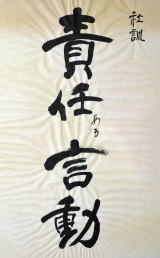 社訓
責任ある言動